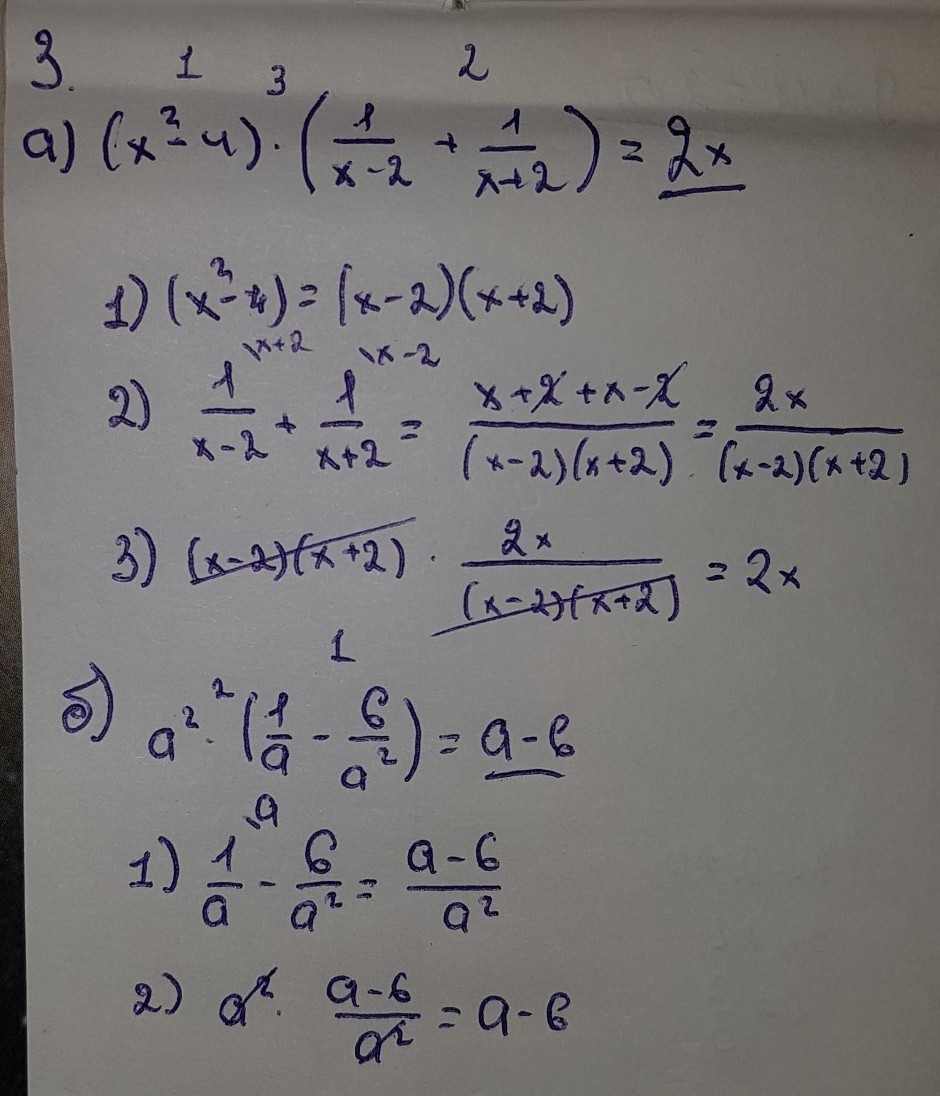 3.
1 3 2
а) (x² - 4) · (1/(x-2) + 1/(x+2)) = 2x
1) (x² - 4) = (x-2)(x+2)
2) 1/(x-2) \x+2 + 1/(x+2) \x-2 = (x+2+x-2)/((x-2)(x+2)) = 2x/((x-2)(x+2))
3) (x-2)(x+2) · 2x/((x-2)(x+2)) = 2x
2 1
б) a² · (1/a - 6/a²) = a-6
1) 1/a \a - 6/a² = (a-6)/a²
2) a² · (a-6)/a² = a-6